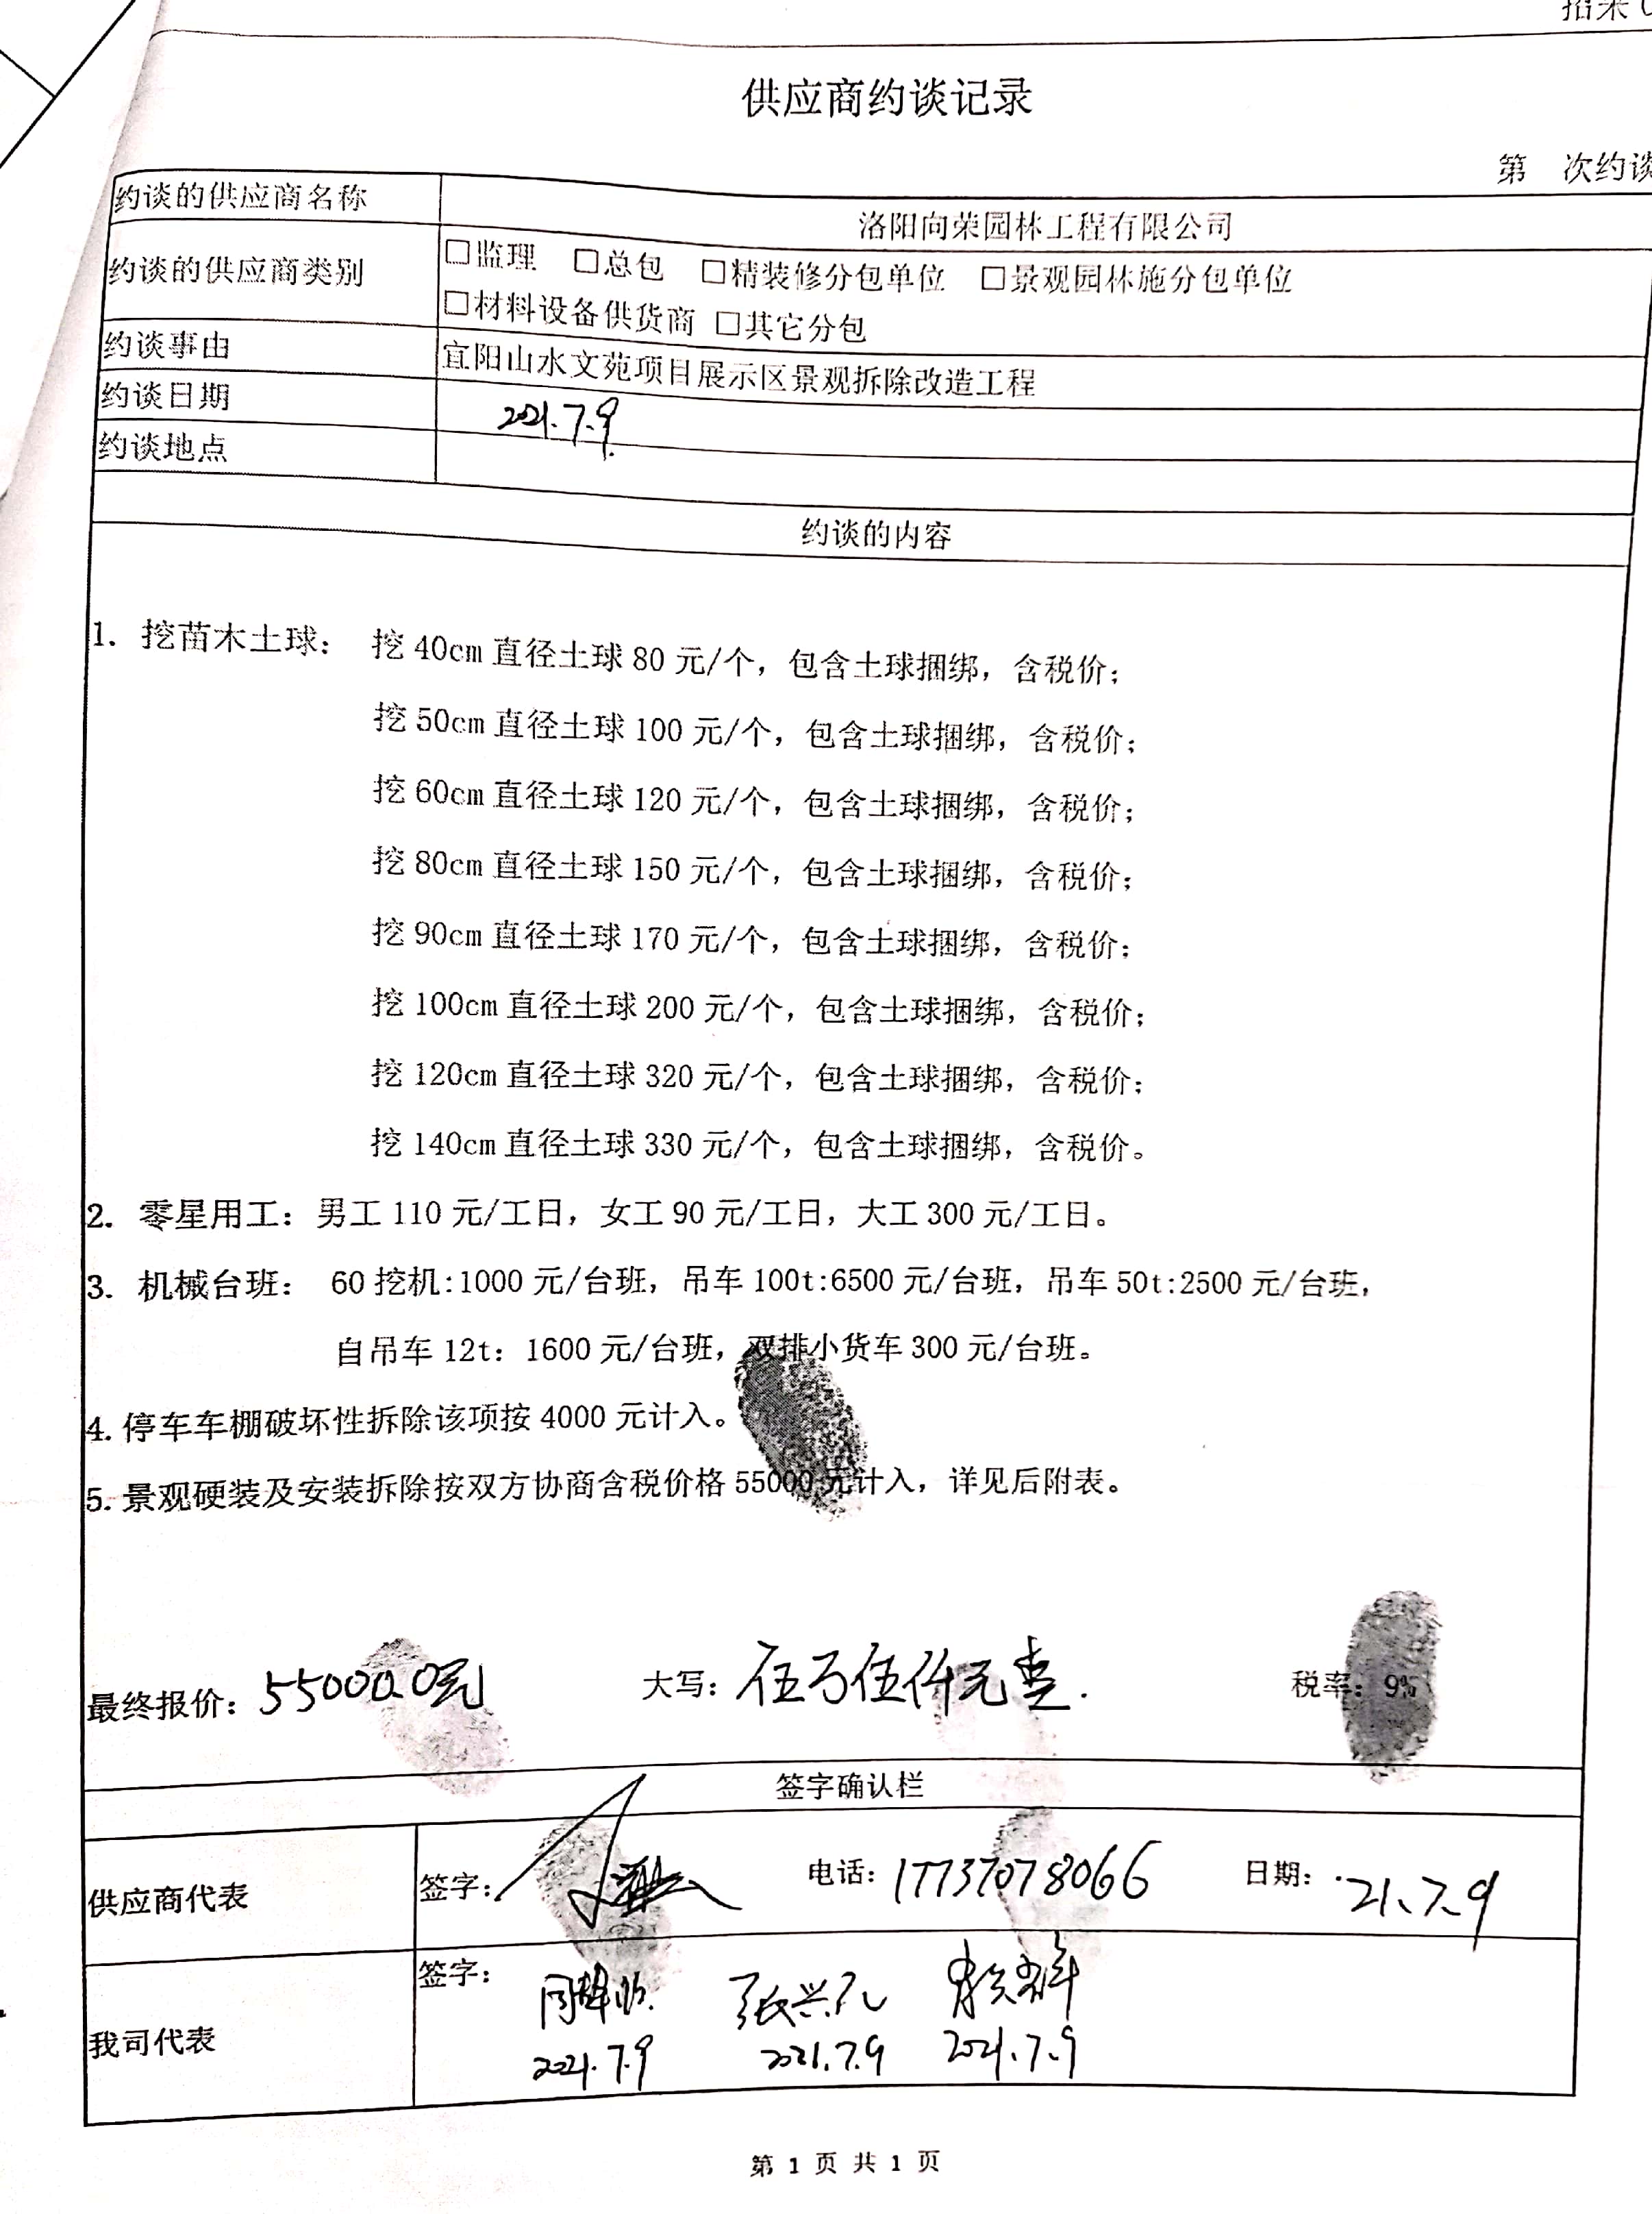 招采
供应商约谈记录
第 次约谈
约谈的供应商名称
洛阳向荣园林工程有限公司
约谈的供应商类别
□监理 □总包 □精装修分包单位 □景观园林施分包单位
□材料设备供货商 □其它分包
约谈事由
宜阳山水文苑项目展示区景观拆除改造工程
约谈日期
2021.7.9
约谈地点
约谈的内容
1. 挖苗木土球： 挖 40cm 直径土球 80 元/个，包含土球捆绑，含税价；
挖 50cm 直径土球 100 元/个，包含土球捆绑，含税价；
挖 60cm 直径土球 120 元/个，包含土球捆绑，含税价；
挖 80cm 直径土球 150 元/个，包含土球捆绑，含税价；
挖 90cm 直径土球 170 元/个，包含土球捆绑，含税价；
挖 100cm 直径土球 200 元/个，包含土球捆绑，含税价；
挖 120cm 直径土球 320 元/个，包含土球捆绑，含税价；
挖 140cm 直径土球 330 元/个，包含土球捆绑，含税价。
2. 零星用工：男工 110 元/工日，女工 90 元/工日，大工 300 元/工日。
3. 机械台班： 60 挖机:1000 元/台班，吊车 100t:6500 元/台班，吊车 50t:2500 元/台班，
自吊车 12t：1600 元/台班，双排小货车 300 元/台班。
4. 停车车棚破坏性拆除该项按 4000 元计入。
5. 景观硬装及安装拆除按双方协商含税价格 55000 元计入，详见后附表。
最终报价：55000.0元 大写：伍万伍仟元整. 税率：9%
签字确认栏
供应商代表
签字： 电话：17737078066 日期：21.7.9
我司代表
签字：
2021.7.9 2021.7.9 2021.7.9
第 1 页 共 1 页